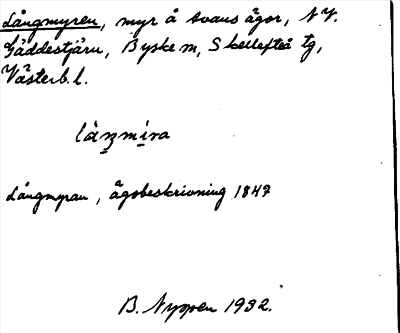 Långmyren, myr å Svans ägor, NV.
Gäddestjärn, Byske sn, Skellefteå tg,
Västerb. l.
Långmyran, ägobeskrivning 1847
B. Nyssen 1932.